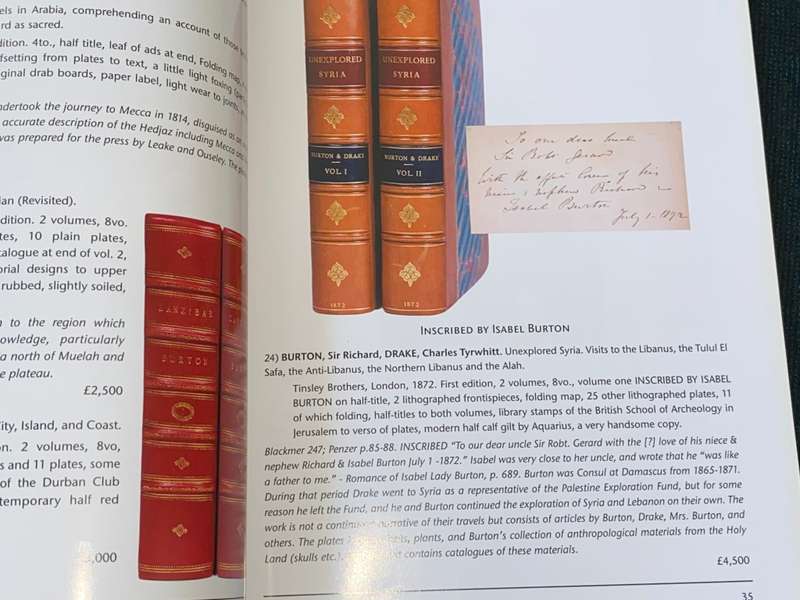 els in Arabia, comprehending an account of those
rd as sacred.
dition. 4to., half title, leaf of ads at end, Folding map,
ffsetting from plates to text, a little light foxing
ginal drab boards, paper label, light wear to joints,
ndertook the journey to Mecca in 1814, disguised as an
accurate description of the Hedjaz including Mecca
was prepared for the press by Leake and Ouseley. The
lan (Revisited).
dition. 2 volumes, 8vo.
tes, 10 plain plates,
talogue at end of vol. 2,
orial designs to upper
rubbed, slightly soiled,
n to the region which
owledge, particularly
a north of Muelah and
e plateau.
£2,500
City, Island, and Coast.
on. 2 volumes, 8vo,
s and 11 plates, some
of the Durban Club
ntemporary half red
,000
ZANZIBAR
BURTON
UNEXPLORED
SYRIA
BURTON & DRAKE
VOL I
1872
UNEXPLORED
SYRIA
BURTON & DRAKE
VOL. II
1872
To our dear Uncle
Sir Robt. Gerard
With the love of his
niece & nephew Richard &
Isabel Burton
July 1-1872
INSCRIBED BY ISABEL BURTON
24) BURTON, Sir Richard, DRAKE, Charles Tyrwhitt. Unexplored Syria. Visits to the Libanus, the Tulul El
Safa, the Anti-Libanus, the Northern Libanus and the Alah.
Tinsley Brothers, London, 1872. First edition, 2 volumes, 8vo., volume one INSCRIBED BY ISABEL
BURTON on half-title, 2 lithographed frontispieces, folding map, 25 other lithographed plates, 11
of which folding, half-titles to both volumes, library stamps of the British School of Archeology in
Jerusalem to verso of plates, modern half calf gilt by Aquarius, a very handsome copy.
Blackmer 247; Penzer p.85-88. INSCRIBED "To our dear uncle Sir Robt. Gerard with the [?] love of his niece &
nephew Richard & Isabel Burton July 1 -1872." Isabel was very close to her uncle, and wrote that he "was like
a father to me." - Romance of Isabel Lady Burton, p. 689. Burton was Consul at Damascus from 1865-1871.
During that period Drake went to Syria as a representative of the Palestine Exploration Fund, but for some
reason he left the Fund, and he and Burton continued the exploration of Syria and Lebanon on their own. The
work is not a continuous narrative of their travels but consists of articles by Burton, Drake, Mrs. Burton, and
others. The plates plants, and Burton's collection of anthropological materials from the Holy
Land (skulls etc.), contains catalogues of these materials.
£4,500
35